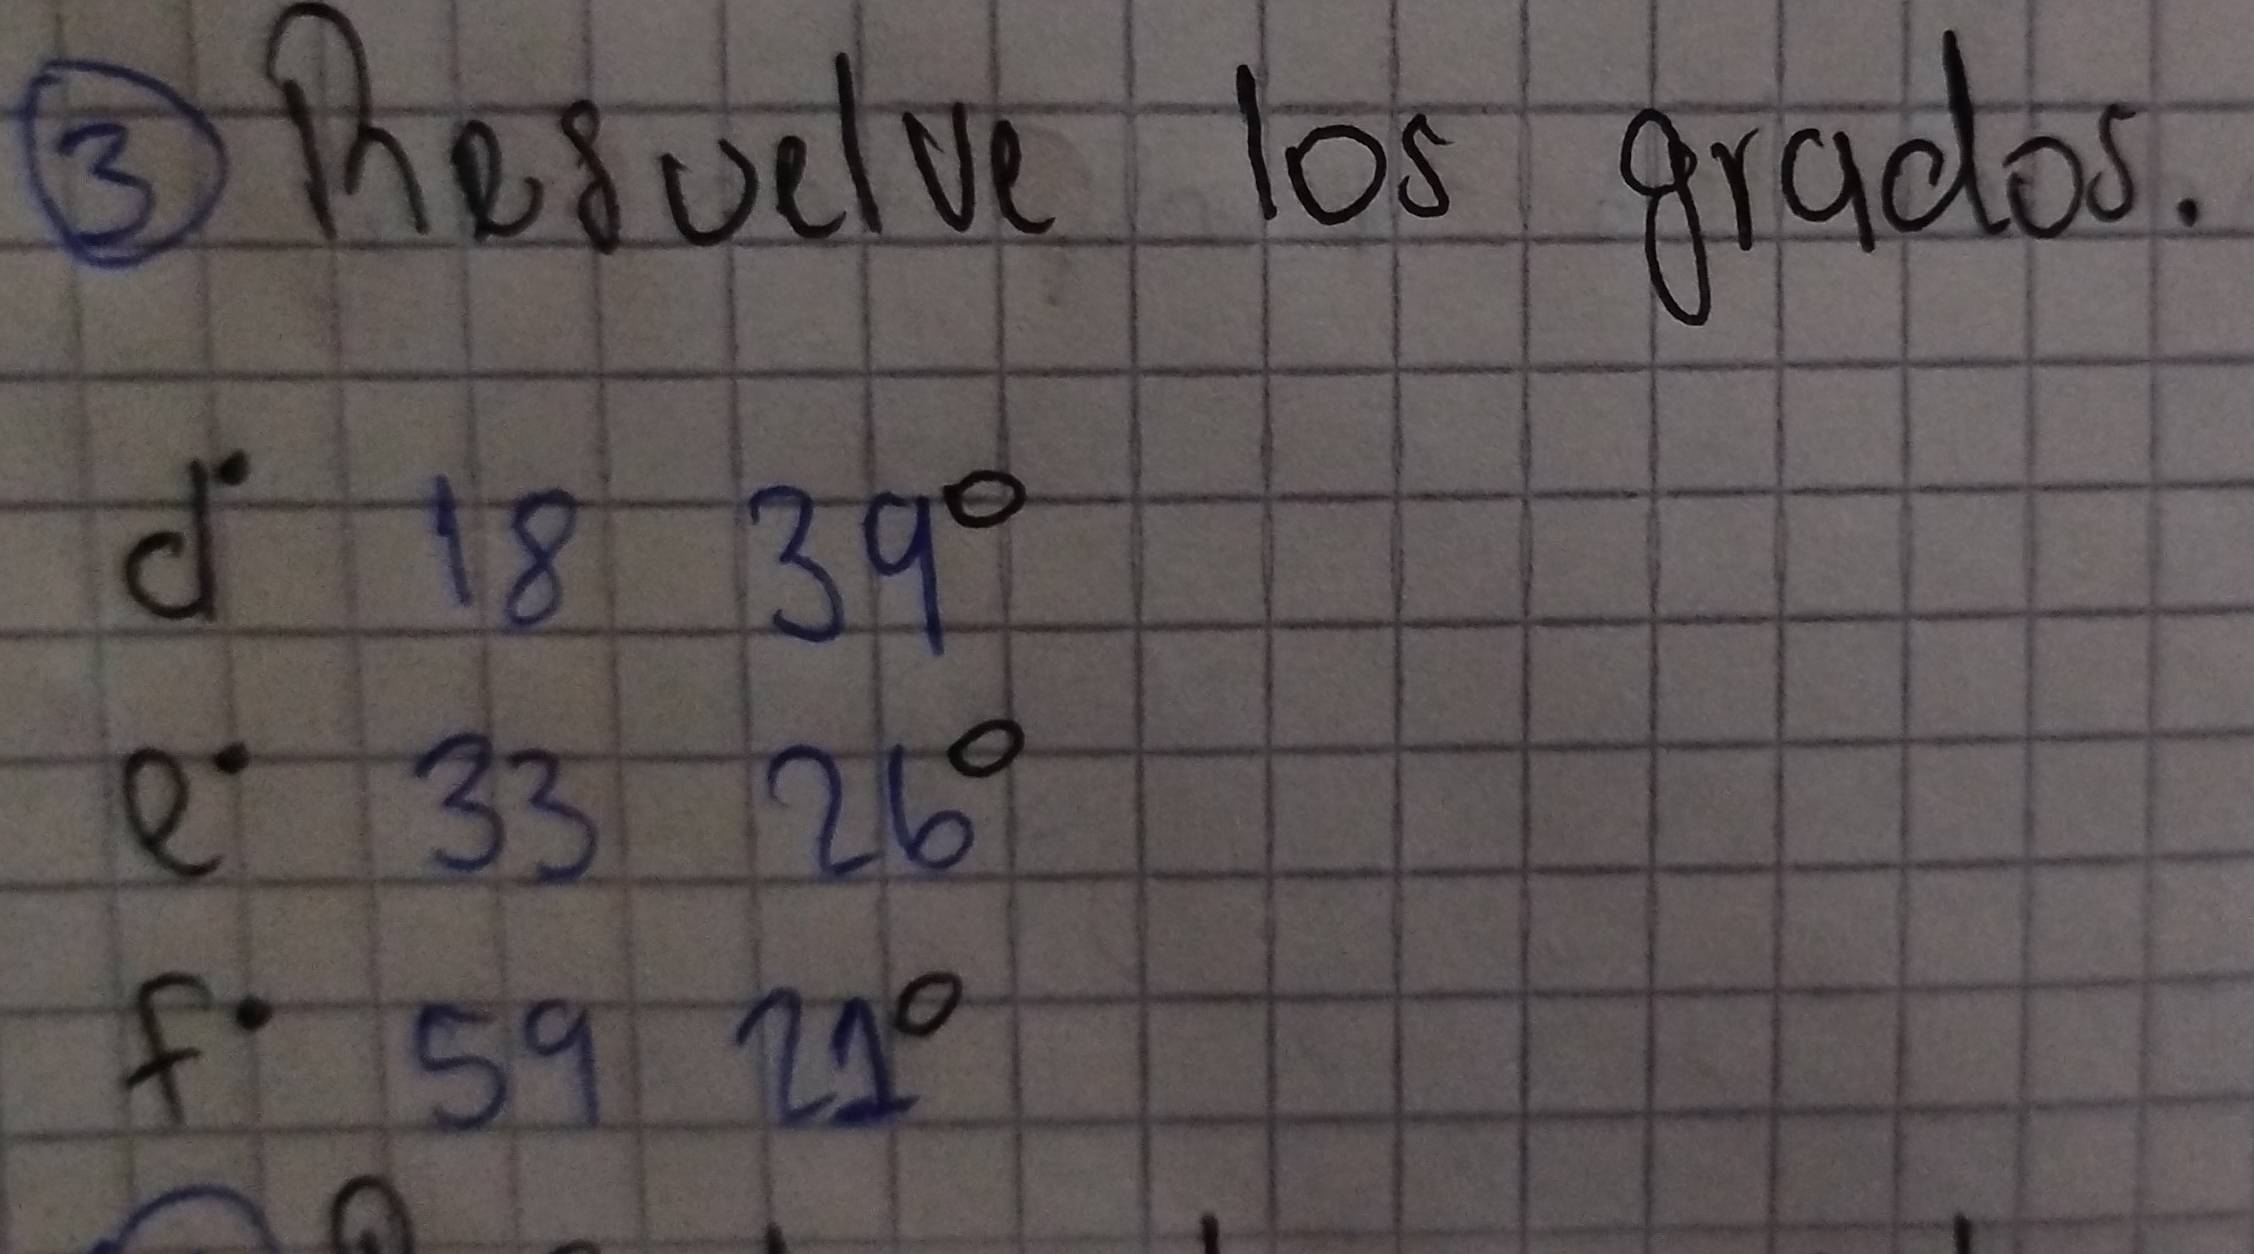 3 Resuelve los grados.
d. 18 39°
e. 33 26°
f. 59 21°